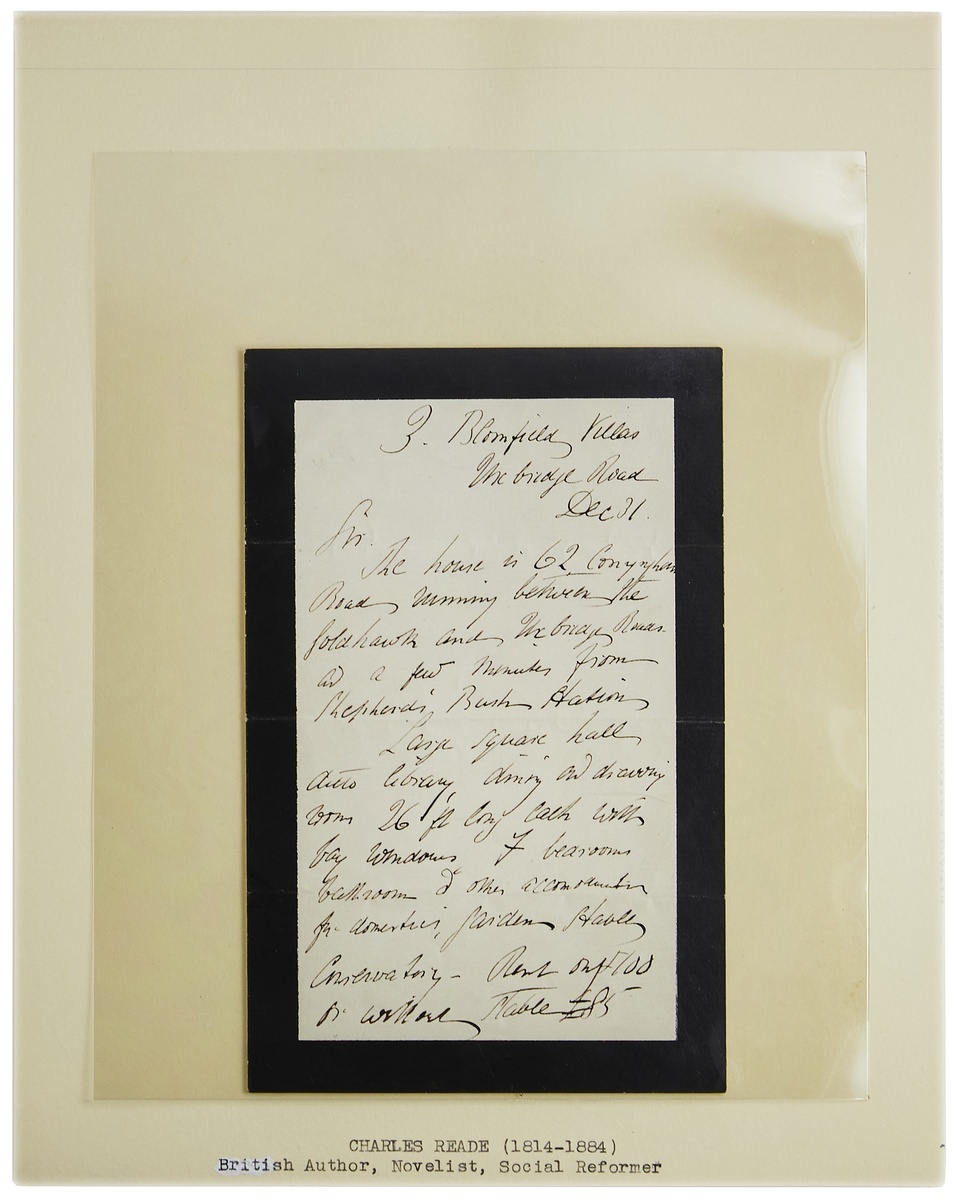 3. Blomfield Villas
Uxbridge Road
Dec 31.
Sir.
The house is 62 Conyngham
Road running between the
Goldhawk and Uxbridge Roads
and a few minutes from
Shepherds Bush Station
Large square hall
ditto library, dining and drawing
rooms 26 ft long each with
bay windows 7 bedrooms
bathroom & other accomodation
for domestics, garden Stable
Conservatory – Rent only £100
or without Stable £85
CHARLES READE (1814-1884)
British Author, Novelist, Social Reformer